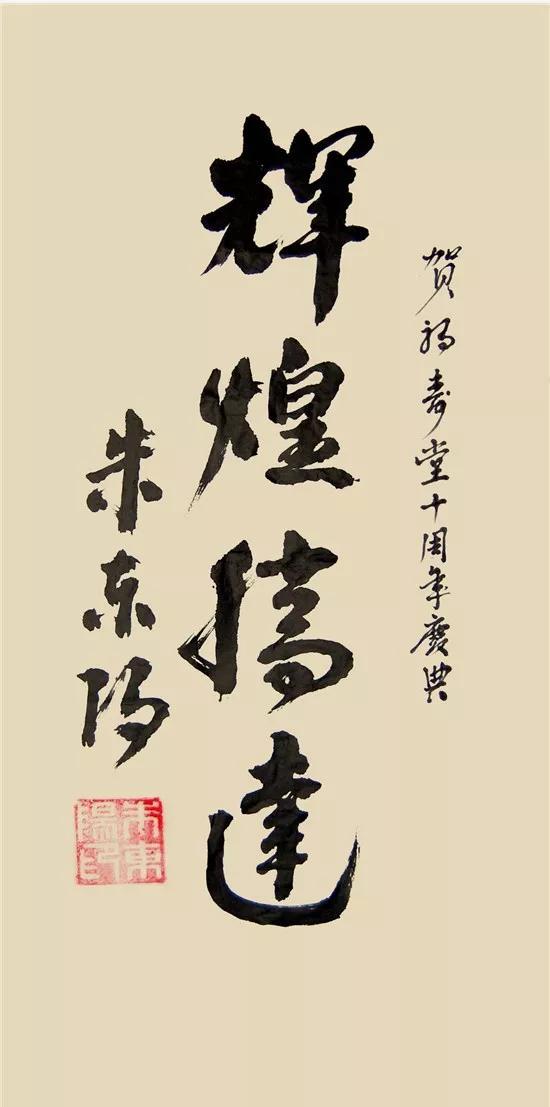 贺福寿堂十周年庆典
辉煌腾达
朱东阳
朱東陽印